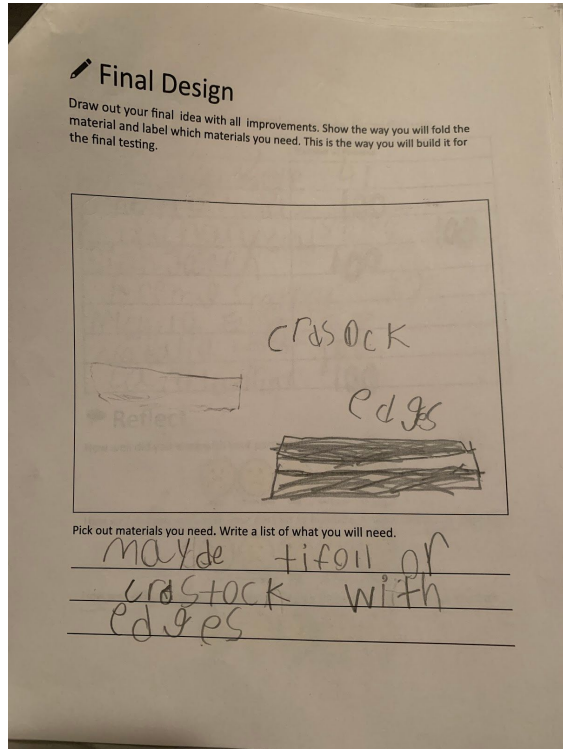 Final Design
Draw out your final idea with all improvements. Show the way you will fold the
material and label which materials you need. This is the way you will build it for
the final testing.
crasock
edges
Reflect
Pick out materials you need. Write a list of what you will need.
mayde tifoil or
crastock with
edges